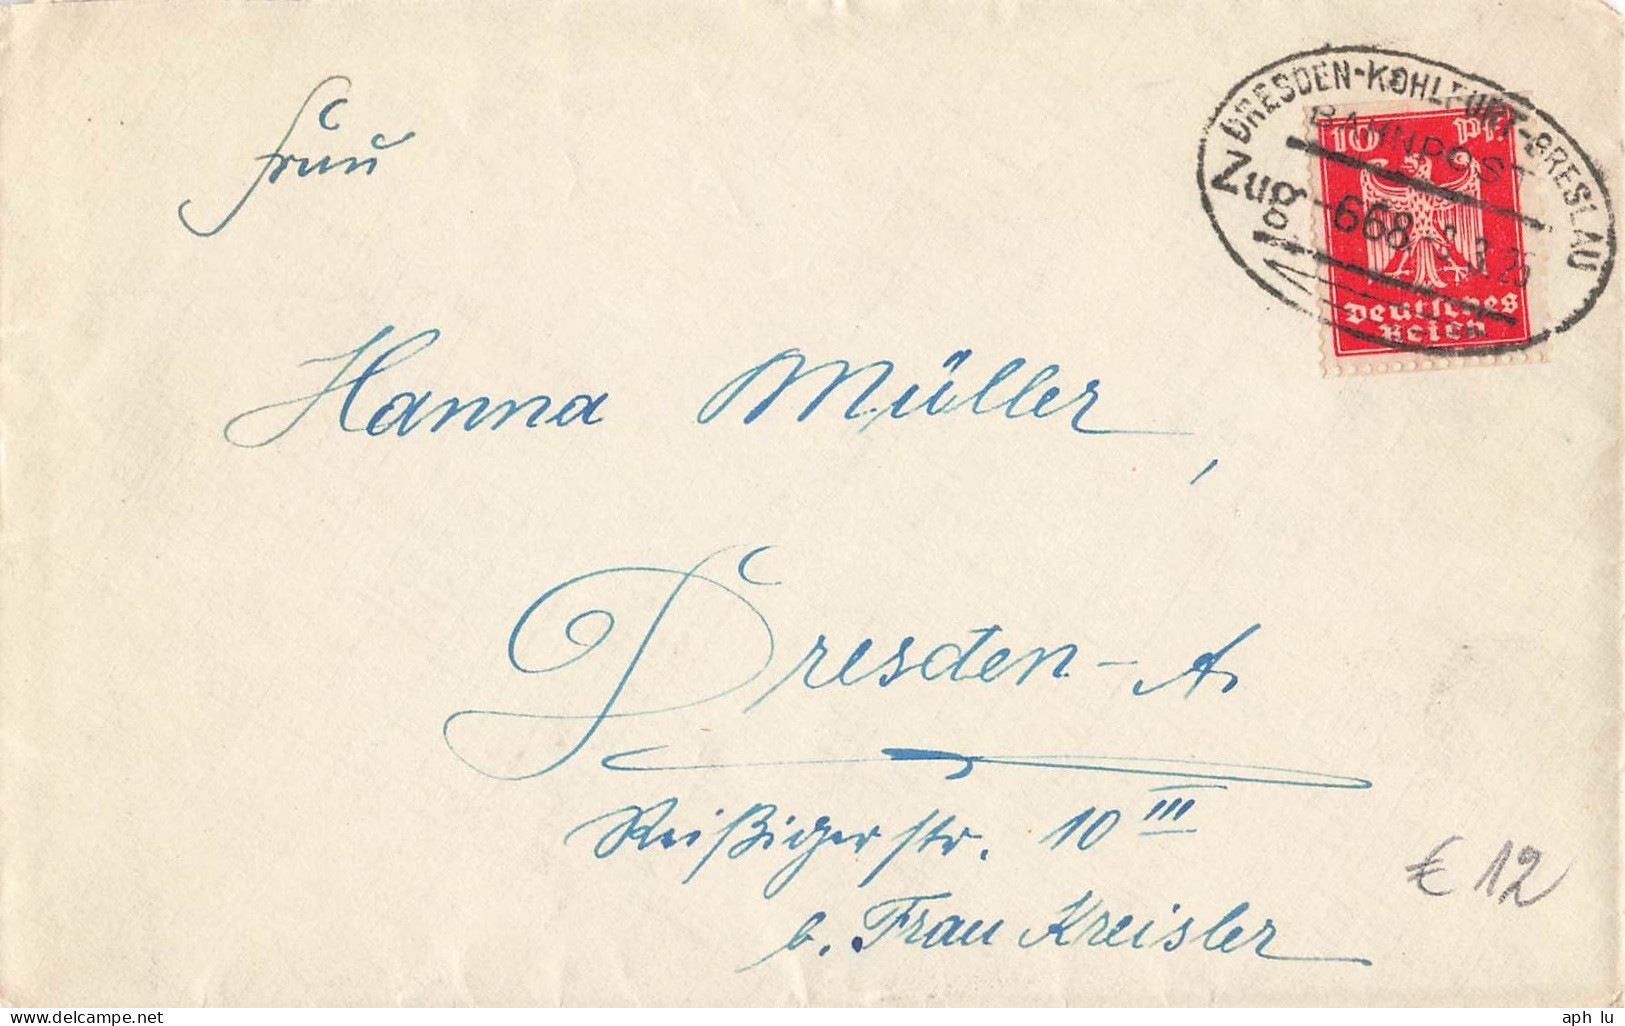 DRESDEN-KOHLFURT-BRESLAU
BAHNPOST
Zug 668
10 Pf
Deutsches
Reich
Frau
Hanna Müller,
Dresden-A.
Reißigerstr. 10 III
b. Frau Kreisler
€ 12
aph lu